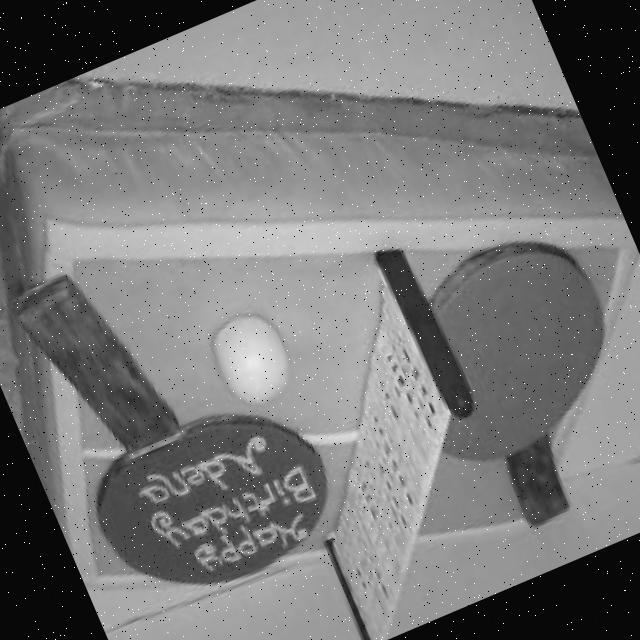 Happy
Birthday
Adena